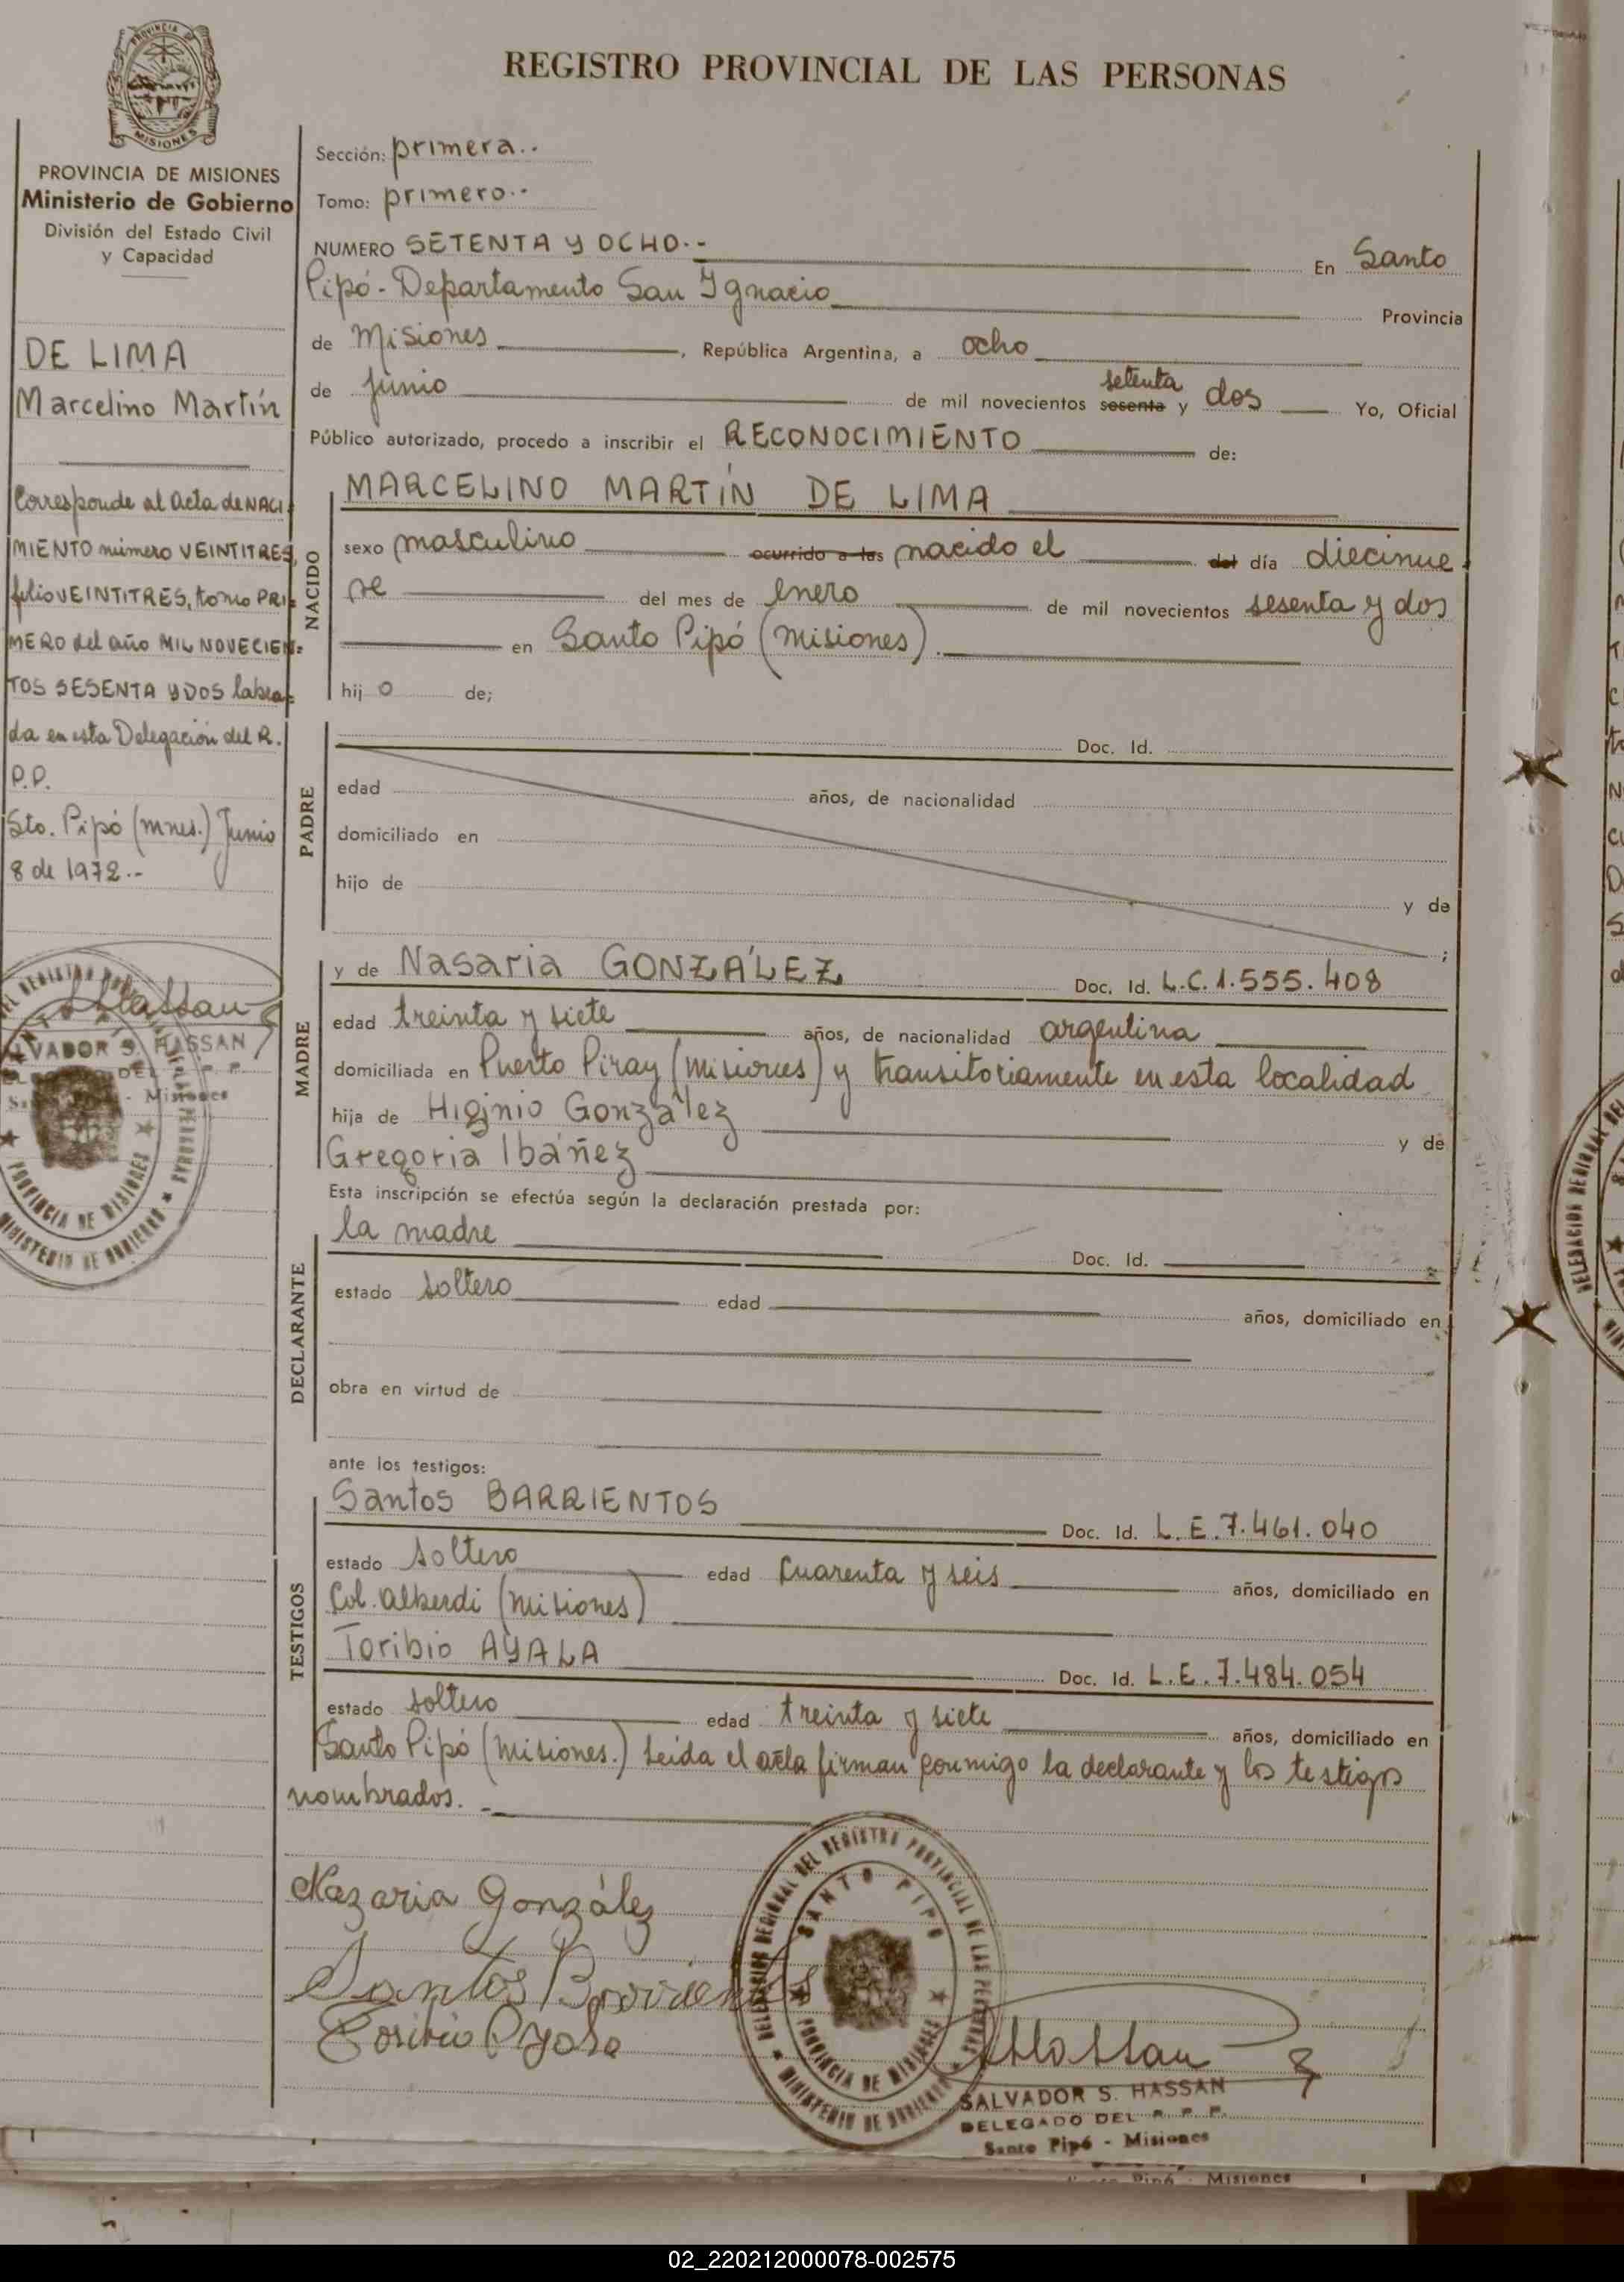 REGISTRO PROVINCIAL DE LAS PERSONAS
PROVINCIA DE MISIONES
Ministerio de Gobierno
División del Estado Civil
y Capacidad
DE LIMA
Marcelino Martín
Corresponde al Acta de NACI
MIENTO número VEINTITRES,
folio VEINTITRES, tomo PRI=
MERO del año MIL NOVECIEN=
TOS SESENTA Y DOS labra=
da en esta Delegación del R.
P.P.
Sto. Pipó (Mnes.) Junio
8 de 1972.-
SALVADOR S. HASSAN
Sección: primera..
Tomo: primero..
NUMERO SETENTA Y OCHO.- En Santo
Pipó - Departamento San Ignacio Provincia
de Misiones, República Argentina, a ocho
de junio de mil novecientos sesenta setenta y dos Yo, Oficial
Público autorizado, procedo a inscribir el RECONOCIMIENTO de:
NACIDO
MARCELINO MARTÍN DE LIMA
sexo masculino ocurrido a las nacido el del día diecinue
ve del mes de enero de mil novecientos sesenta y dos
en Santo Pipó (Misiones).
hij o de;
PADRE
Doc. Id.
edad años, de nacionalidad
domiciliado en
hijo de y de
;
MADRE
y de Nasaria GONZÁLEZ Doc. Id. L.C. 1.555.408
edad treinta y siete años, de nacionalidad argentina
domiciliada en Puerto Piray (Misiones) y transitoriamente en esta localidad
hija de Higinio González y de
Gregoria Ibáñez
Esta inscripción se efectúa según la declaración prestada por:
DECLARANTE
la madre Doc. Id.
estado soltero edad años, domiciliado en
obra en virtud de
ante los testigos:
TESTIGOS
Santos BARRIENTOS Doc. Id. L.E. 7.461.040
estado soltero edad cuarenta y seis años, domiciliado en
Col. Alberdi (Misiones)
Toribio AYALA Doc. Id. L.E. 7.484.054
estado soltero edad treinta y siete años, domiciliado en
Santo Pipó (Misiones.) Leída el acta firman conmigo la declarante y los testigos
nombrados. -
Nazaria González
Santos Barrientos
Toribio Ayala
DELEGACION REGIONAL DEL REGISTRO PROVINCIAL DE LAS PERSONAS
SANTO PIPO
PROVINCIA DE MISIONES
MINISTERIO DE GOBIERNO
SALVADOR S. HASSAN
DELEGADO DEL R. P. P.
Santo Pipó - Misiones
02_220212000078-002575